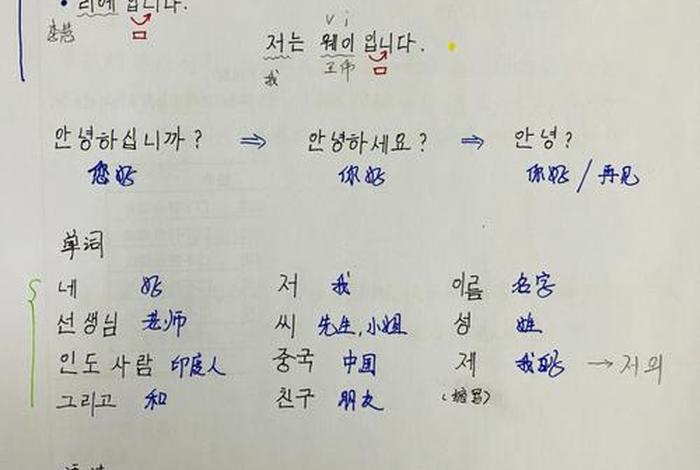 • 리에 입니다.
ㅁ
v i
저는 웨이 입니다.
我 王伟 ㅁ
안녕하십니까? ⇒ 안녕하세요? ⇒ 안녕?
您好 你好 你好 / 再见
单词
네 好 저 我 이름 名字
선생님 老师 씨 先生,小姐 성 姓
인도 사람 印度人 중국 中国 제 我的 → 저의
그리고 和 친구 朋友 (缩写)